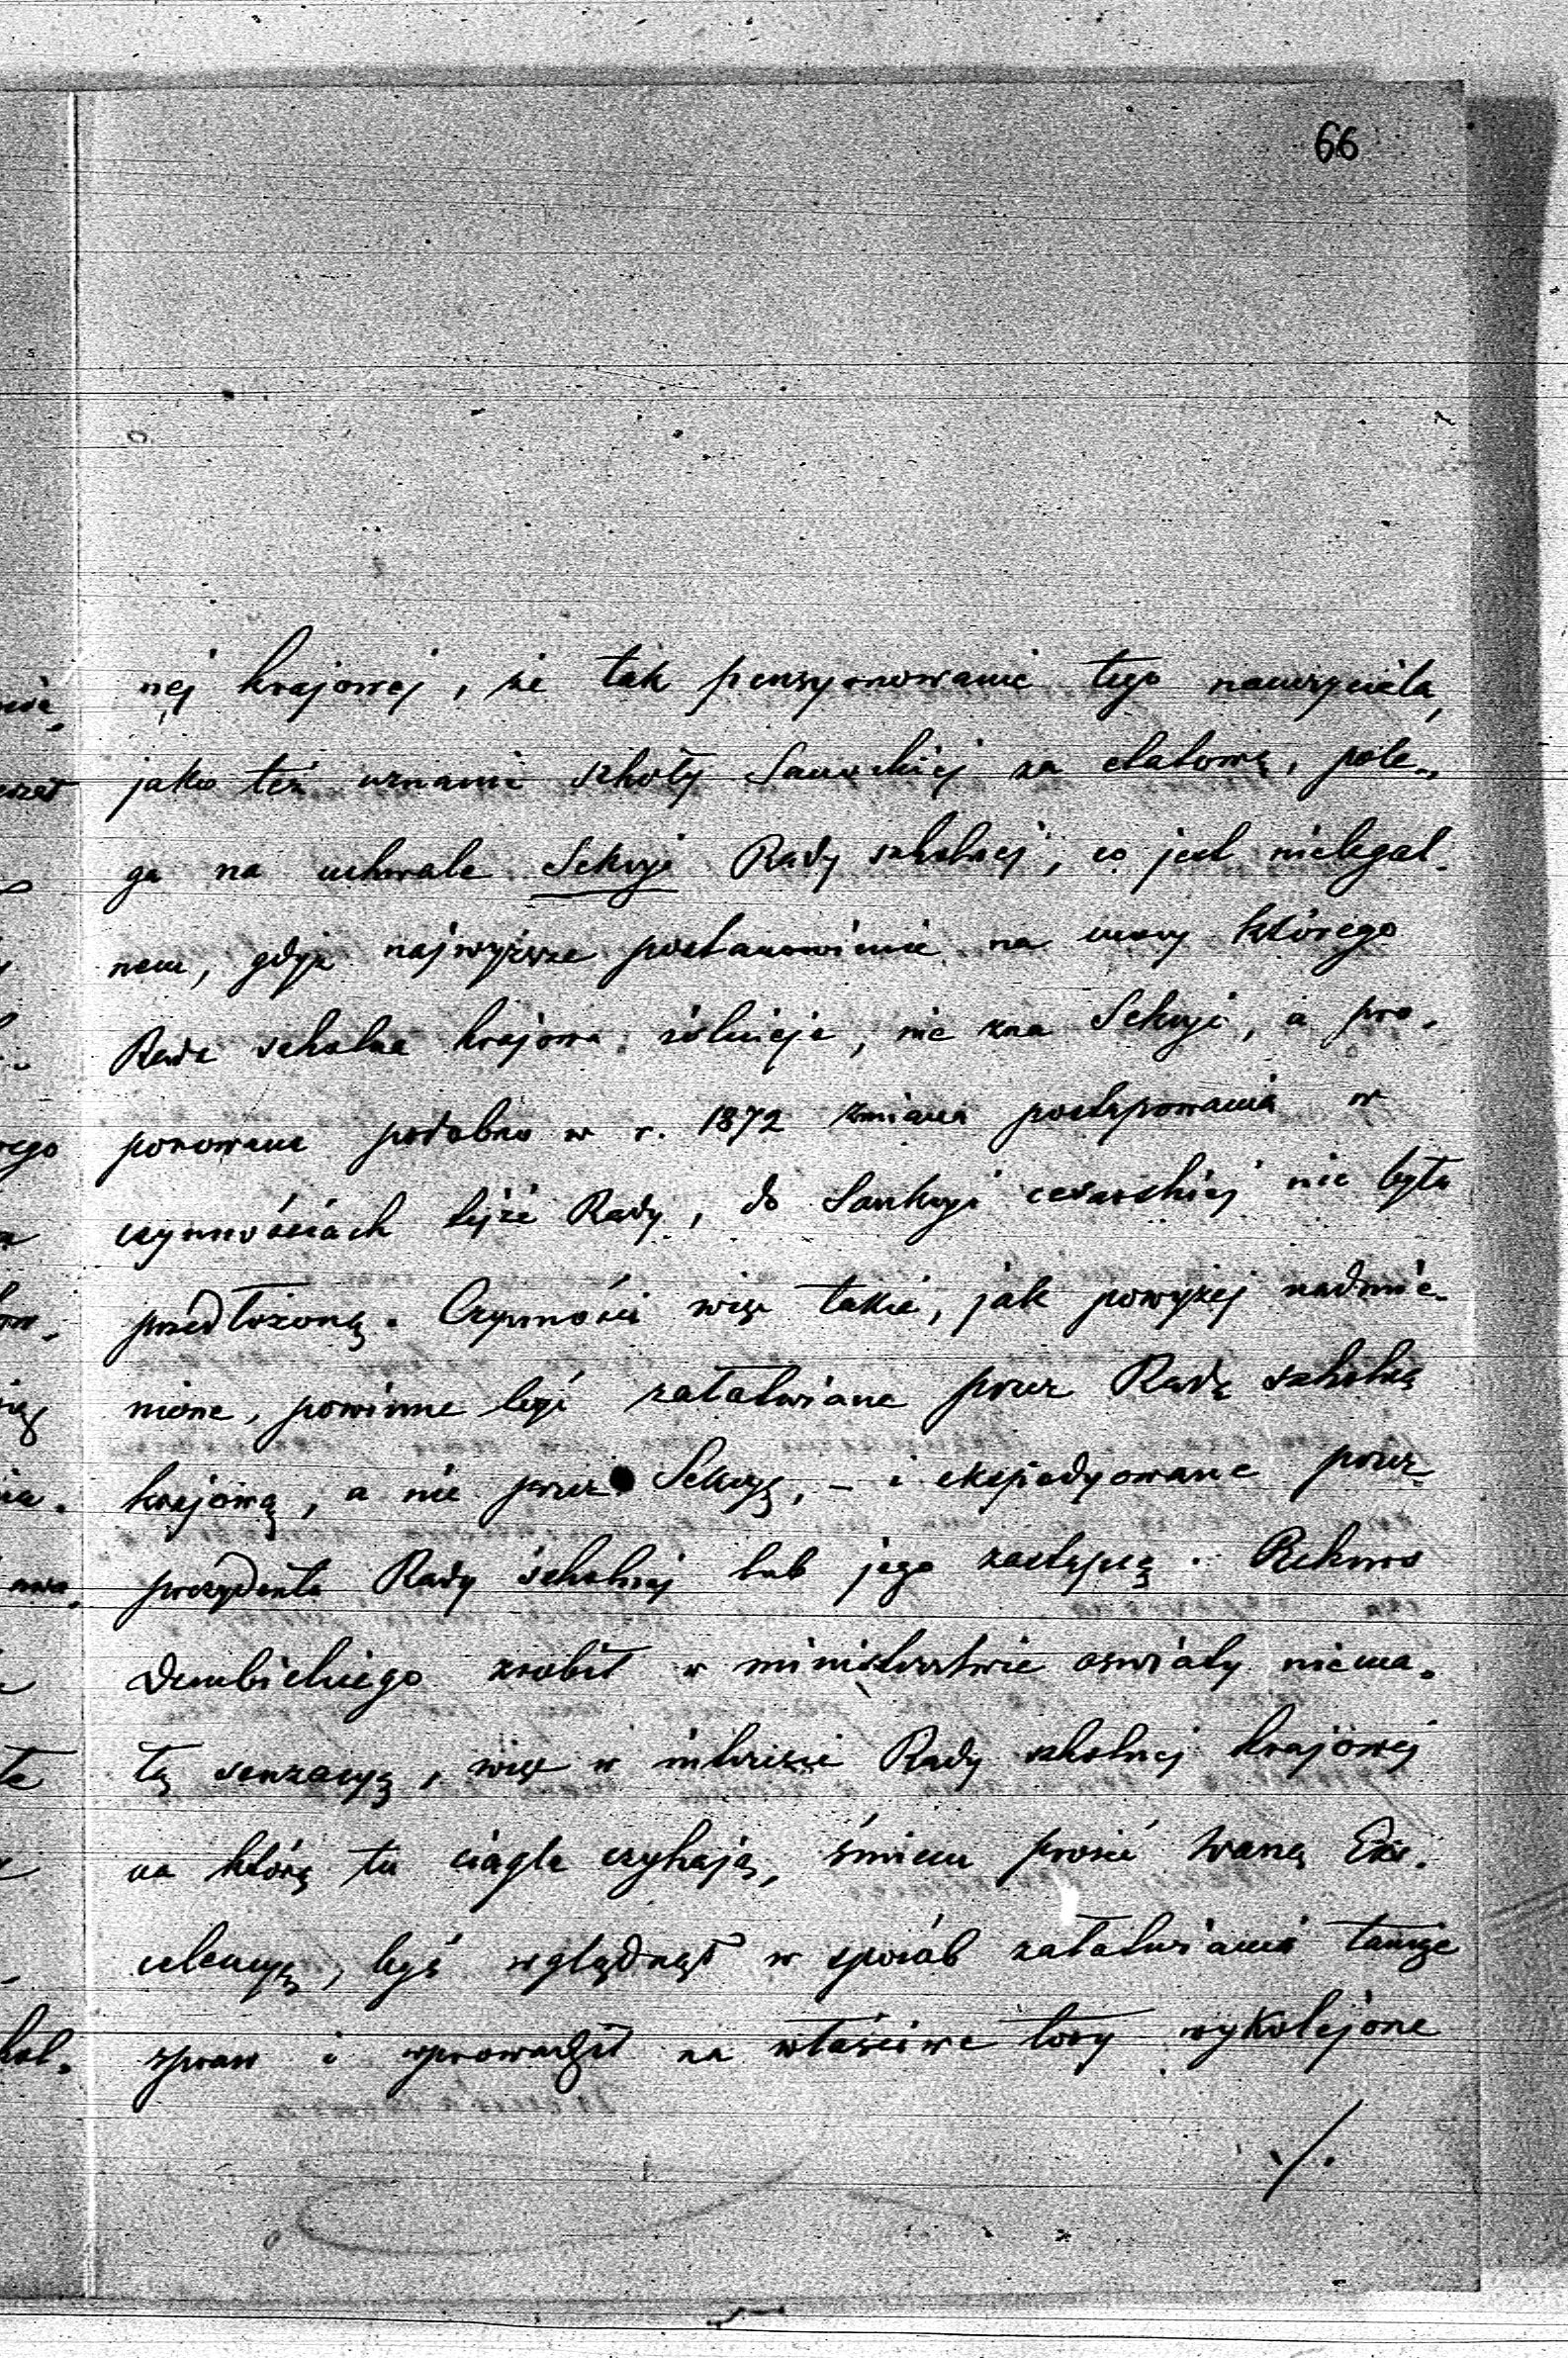 66
nej krajowej, że tak pensyonowanie tego nauczyciela,
jako też uznanie szkoły Sanockiej za etatową, pole-
ga na uchwale Sekcyi Rady szkolnej, co jest nielegal-
nem, gdyż najwyższe postanowienie na mocy którego
Rada szkolna krajowa istnieje, nie zna Sekcyi, a pro-
ponowana podobno w r. 1872 zmiana postępowania w
czynnościach tejże Rady, do Sankcyi cesarskiej nie była
przedłożoną. Czynności więc takie, jak powyżej nadmie-
nione, powinne być załatwiane przez Radę szkolną
krajową, a nie przez Sekcyą, – i ekspedyowane przez
prezydenta Rady szkolnej lub jego zastępcą. Rekurs
Dembickiego zrobił w ministerstwie oswiaty niema-
łą senzacyą, więc w interesie Rady szkolnej krajowej
na którą tu ciągle czyhają, śmiem prosić Waszą Exc-
celencyą, byś wglądnął w sposób załatwiania tamże
spraw i wprowadził na właściwe tory wykolejone
./.